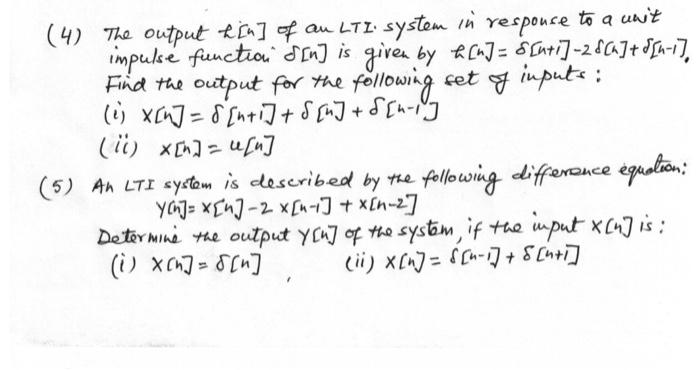 (4) The output h[n] of an LTI. system in response to a unit
impulse function δ[n] is given by h[n] = δ[n+1] - 2δ[n] + δ[n-1].
Find the output for the following set of inputs:
(i) x[n] = δ[n+1] + δ[n] + δ[n-1]
(ii) x[n] = u[n]
(5) An LTI system is described by the following difference equation:
y[n] = x[n] - 2 x[n-1] + x[n-2]
Determine the output y[n] of the system, if the input x[n] is:
(i) x[n] = δ[n] , (ii) x[n] = δ[n-1] + δ[n+1]